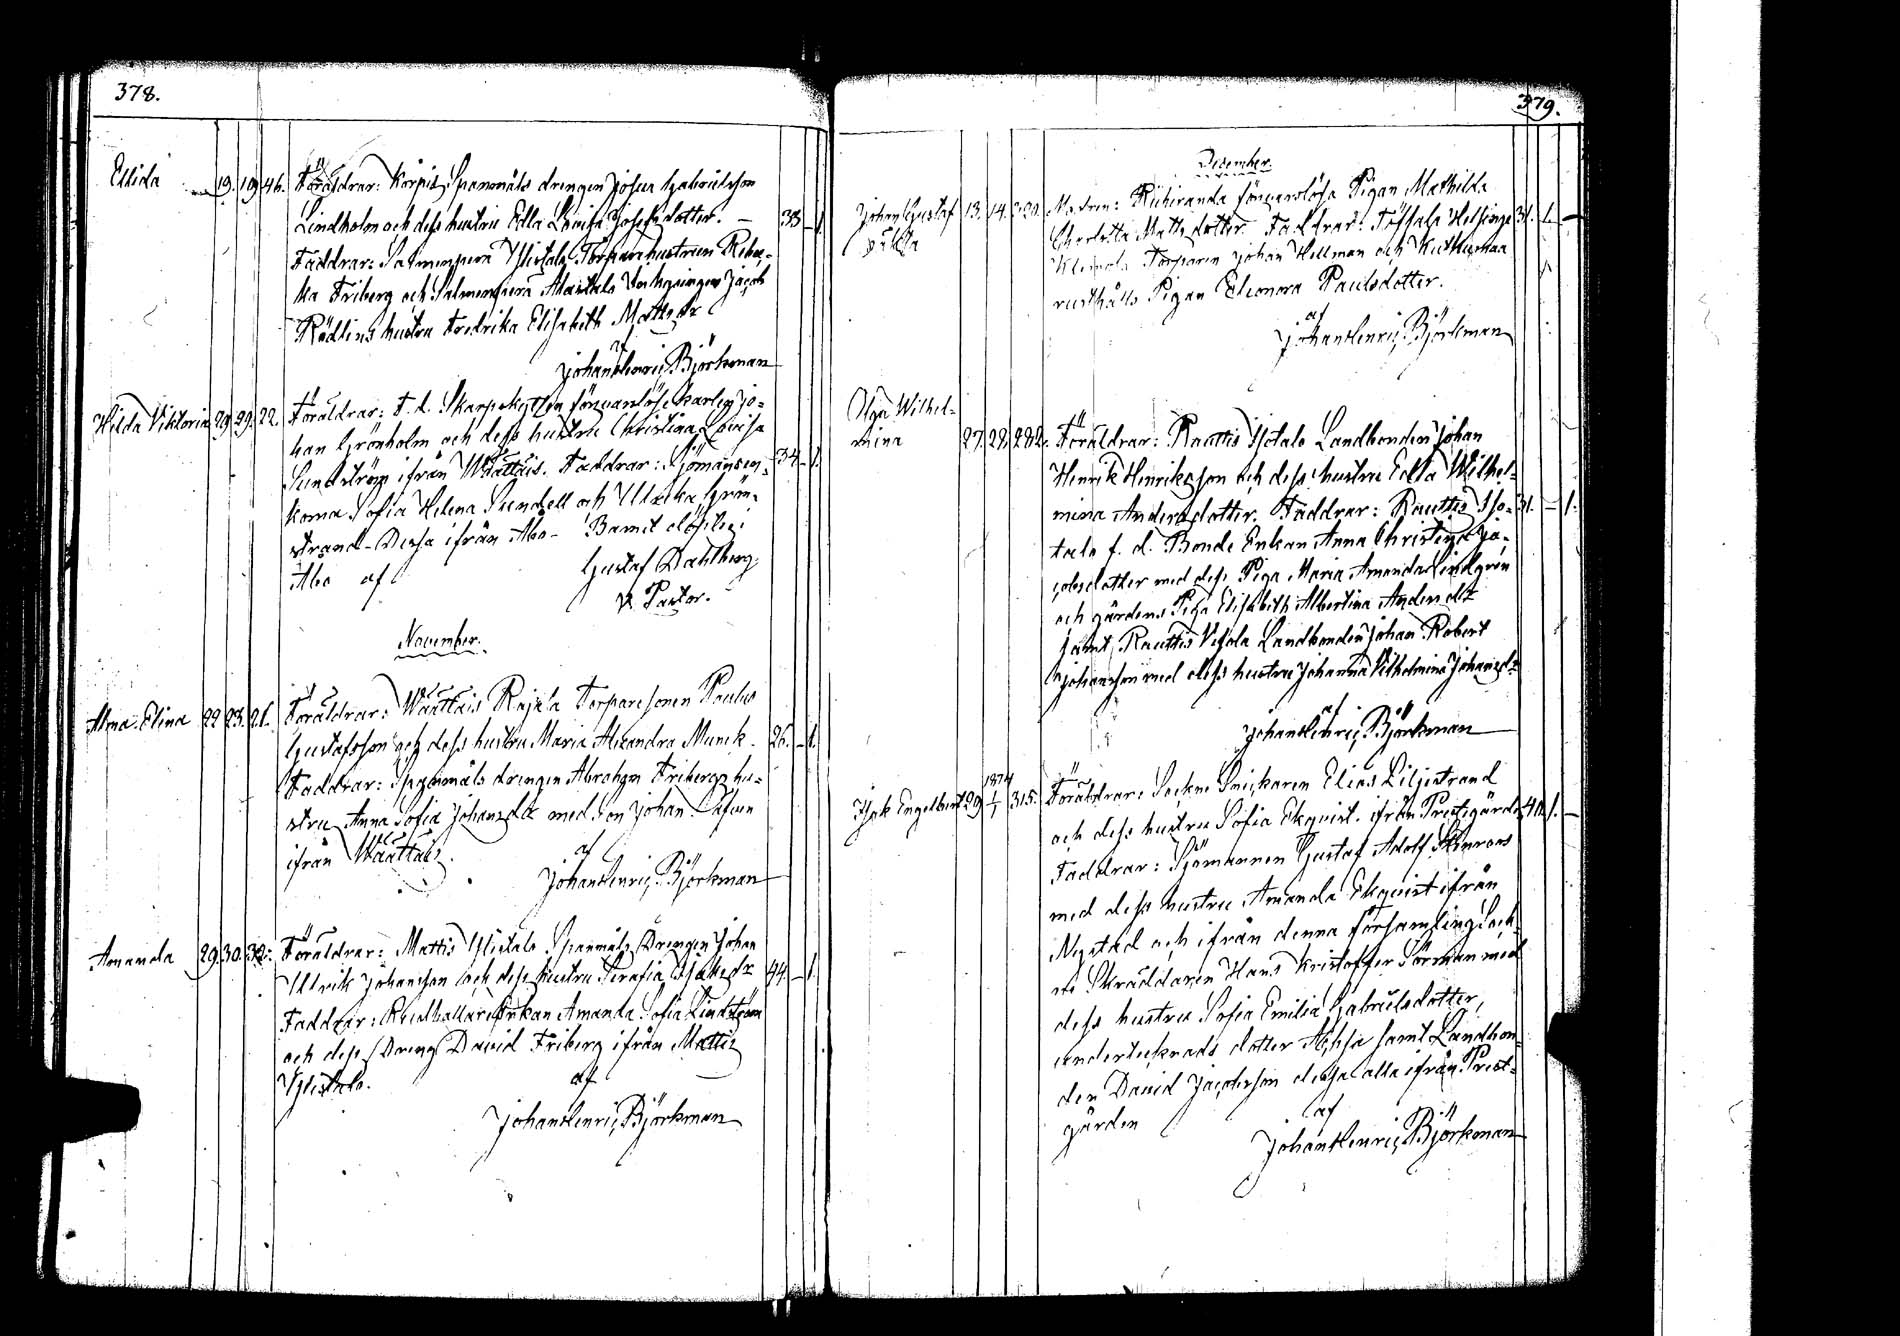 378.
Ellida 19. 19 46. Föräldrar: Korpis Spanmåls drengen Josua Gabrielsson
Lindholm och dess hustru Edla Lovisa Josefsdotter. — 38 – 1.
Faddrar: Salmenperä Ylistalo Torparehustrun Rebec-
ka Friberg och Salmenperä Alastalo
Rödlins hustru Fredrika Elisabeth Mattsdr
af
Johan Henric Björkman
Hilda Viktoria 29 29. 22. Föräldrar: F. d. Skarpskytten försvarslöse karlen Jo-
han Grönholm och dess hustru Christina Lovisa
Sundström ifrån Wäättäis. Faddrar: Sjömansen- 34 – 1.
korna Sofia Helena Sundell och Ulrika Grön-
strand – Dessa ifrån Åbo – Barnet döptes i
Åbo af Gustaf Dahlberg
v. Pastor.
November.
Alma Elina 22 23. 21. Föräldrar: Wäättäis Rajala Torparesonen Paulus
Gustafsson och dess hustru Maria Alexandra Munck. 26. – 1.
Faddrar: Spanmåls drengen Abraham Fribergs hu-
stru Anna Sofia Johansdr med son Johan
ifrån Wäättäis.
af
Johan Henric Björkman
Amanda 29. 30. 32. Föräldrar: Mattis Ylistalo Spanmåls Drengen Johan
Ulrik Johansson och dess hustru Serafia Isaksdr 44 – 1.
Faddrar: Rusthållare Enkan Amanda Sofia Lindström
och dess Dreng David Friberg ifrån Mattis
Ylistalo.
af
Johan Henric Björkman
379.
December.
Johan Gustaf 13. 14. 230. Modren: Riihiranda försvarslösa Pigan Mathilda
oäkta Charlotta Mattsdotter. Faddrar: Töffsala Helsinge 31. 1. —
Torparen Johan Hellman och Kuthumaa
rusthålls Pigan Eleonora Paulsdotter.
af
Johan Henric Björkman
Olga Wilhel-
mina 27. 28. 282. Föräldrar: Rauttis Isotalo Landbonden Johan
Henrik Henriksson och dess hustru Edla Wilhel-
mina Andersdotter. Faddrar: Rauttis Iso- 31. – 1.
talo f. d. Bonde Enkan Anna Christina Ja-
cobsdotter med dess Piga Maria Amanda Lindgren
och gårdens Piga Elisabeth Albertina Andersdr
samt Rauttis Vesola Landbonden Johan Robert
Johansson med dess hustru Johanna Vilhelmina Johansdr
af
Johan Henric Björkman
1874
Isak Engelbert 29 1/1 315. Föräldrar: Sockne Snickaren Elias Liljestrand
och dess hustru Sofia Ekqvist. ifrån Prestgården 40. 1. —
Faddrar: Sjömannen Gustaf Adolf Stenroos
med dess hustru Amanda Ekqvist ifrån
Nystad och ifrån denna församling Sock-
ne Skräddaren Hans Kristoffer Sörman med
dess hustru Sofia Emilia Gabrielsdotter,
undertecknads dotter samt Landbon-
den David Jacobsson dessa alla ifrån Prest-
gården
af
Johan Henric Björkman